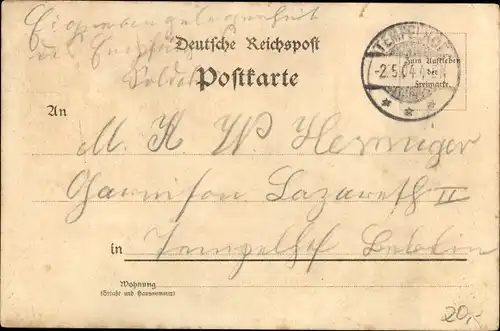 Eigene Angelegenheit
des Empfängers
Soldat
Deutsche Reichspost
Postkarte
TEMPELHOF
-2.5.04
Zum Aufkleben
der
Freimarke.
An
M. K. W.
Garnison Lazareth II
in Tempelhof Berlin
Wohnung
(Straße und Hausnummer)
20,-